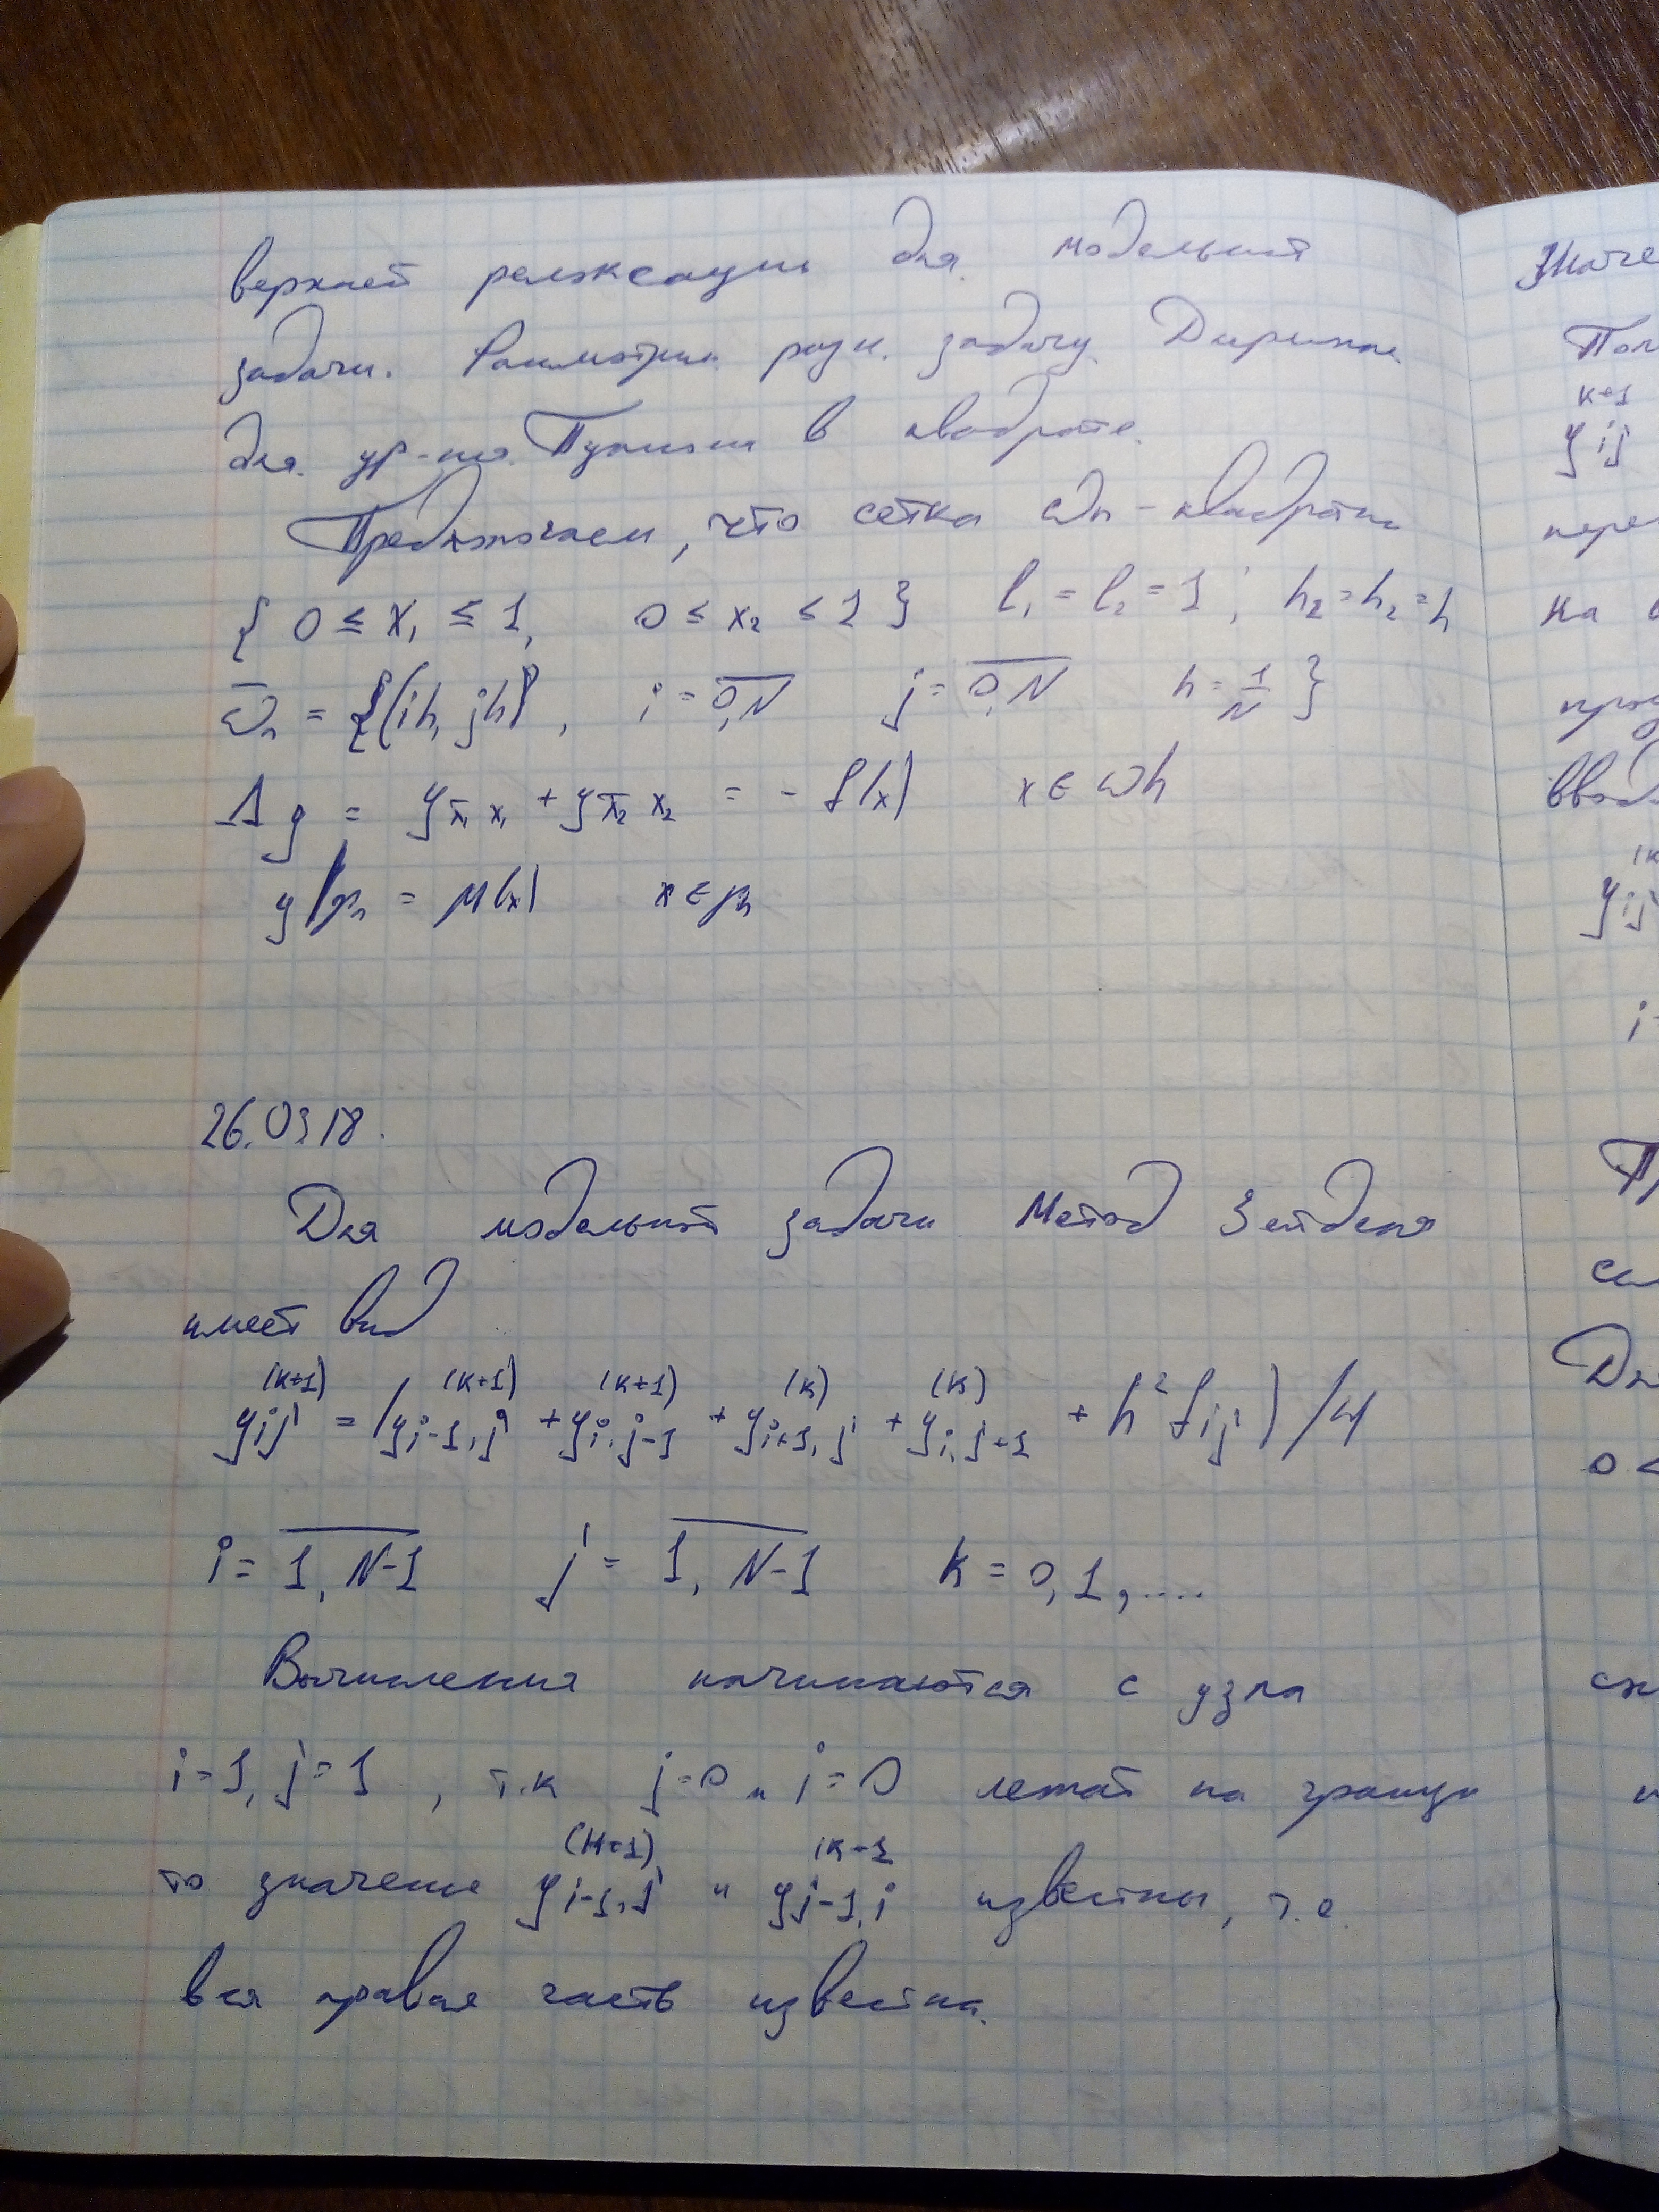 верхней релаксации для модельной
задачи. Рассмотрим разн. задачу Дирихле
для ур-ия Пуассона в квадрате.
Предполагаем, что сетка ωh - квадратн
{ 0 ≤ x₁ ≤ 1, 0 ≤ x₂ ≤ 1 } l₁ = l₂ = 1; h₂ = h₂ = h
ω̄h = {(ih, jh), i = 0,N j = 0,N h = 1/N }
Λy = y x̄₁x₁ + y x̄₂x₂ = - f(x) x ∈ ωh
y|γh = μ(x) x ∈ γh
26.03 18.
Для модельной задачи Метод Зейделя
имеет вид
yij^(k+1) = (y i-1,j^(k+1) + y i,j-1^(k+1) + y i+1,j^(k) + y i,j+1^(k) + h² fij) /4
i = 1, N-1 j = 1, N-1 k = 0, 1, ....
Вычисления начинаются с узла
i=1, j=1, т.к j=0 и i=0 лежат на границе
то значение y i-1,j^(k+1) и y j-1,i^(k+1 известны, т.е.
вся правая часть известна.
Значе
Пол
k+1
yij
пере
на
ввод
(k
yij
i=
Дл
0 <